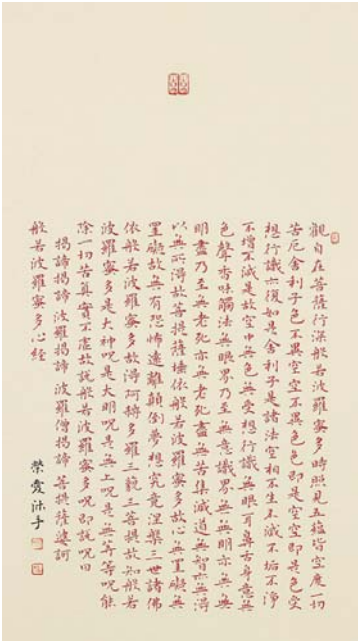 觀自在菩薩行深般若波羅蜜多時照見五蘊皆空度一切
苦厄舍利子色不異空空不異色色即是空空即是色受
想行識亦復如是舍利子是諸法空相不生不滅不垢不淨
不增不減是故空中無色無受想行識無眼耳鼻舌身意無
色聲香味觸法無眼界乃至無意識界無無明亦無無
明盡乃至無老死亦無老死盡無苦集滅道無智亦無得
以無所得故菩提薩埵依般若波羅蜜多故心無罣礙無
罣礙故無有恐怖遠離顛倒夢想究竟涅槃三世諸佛
依般若波羅蜜多故得阿耨多羅三藐三菩提故知般若
波羅蜜多是大神呪是大明呪是無上呪是無等等呪能
除一切苦真實不虛故說般若波羅蜜多呪即說呪曰
揭諦揭諦 波羅揭諦 波羅僧揭諦 菩提薩婆訶
般若波羅蜜多心經
沐手